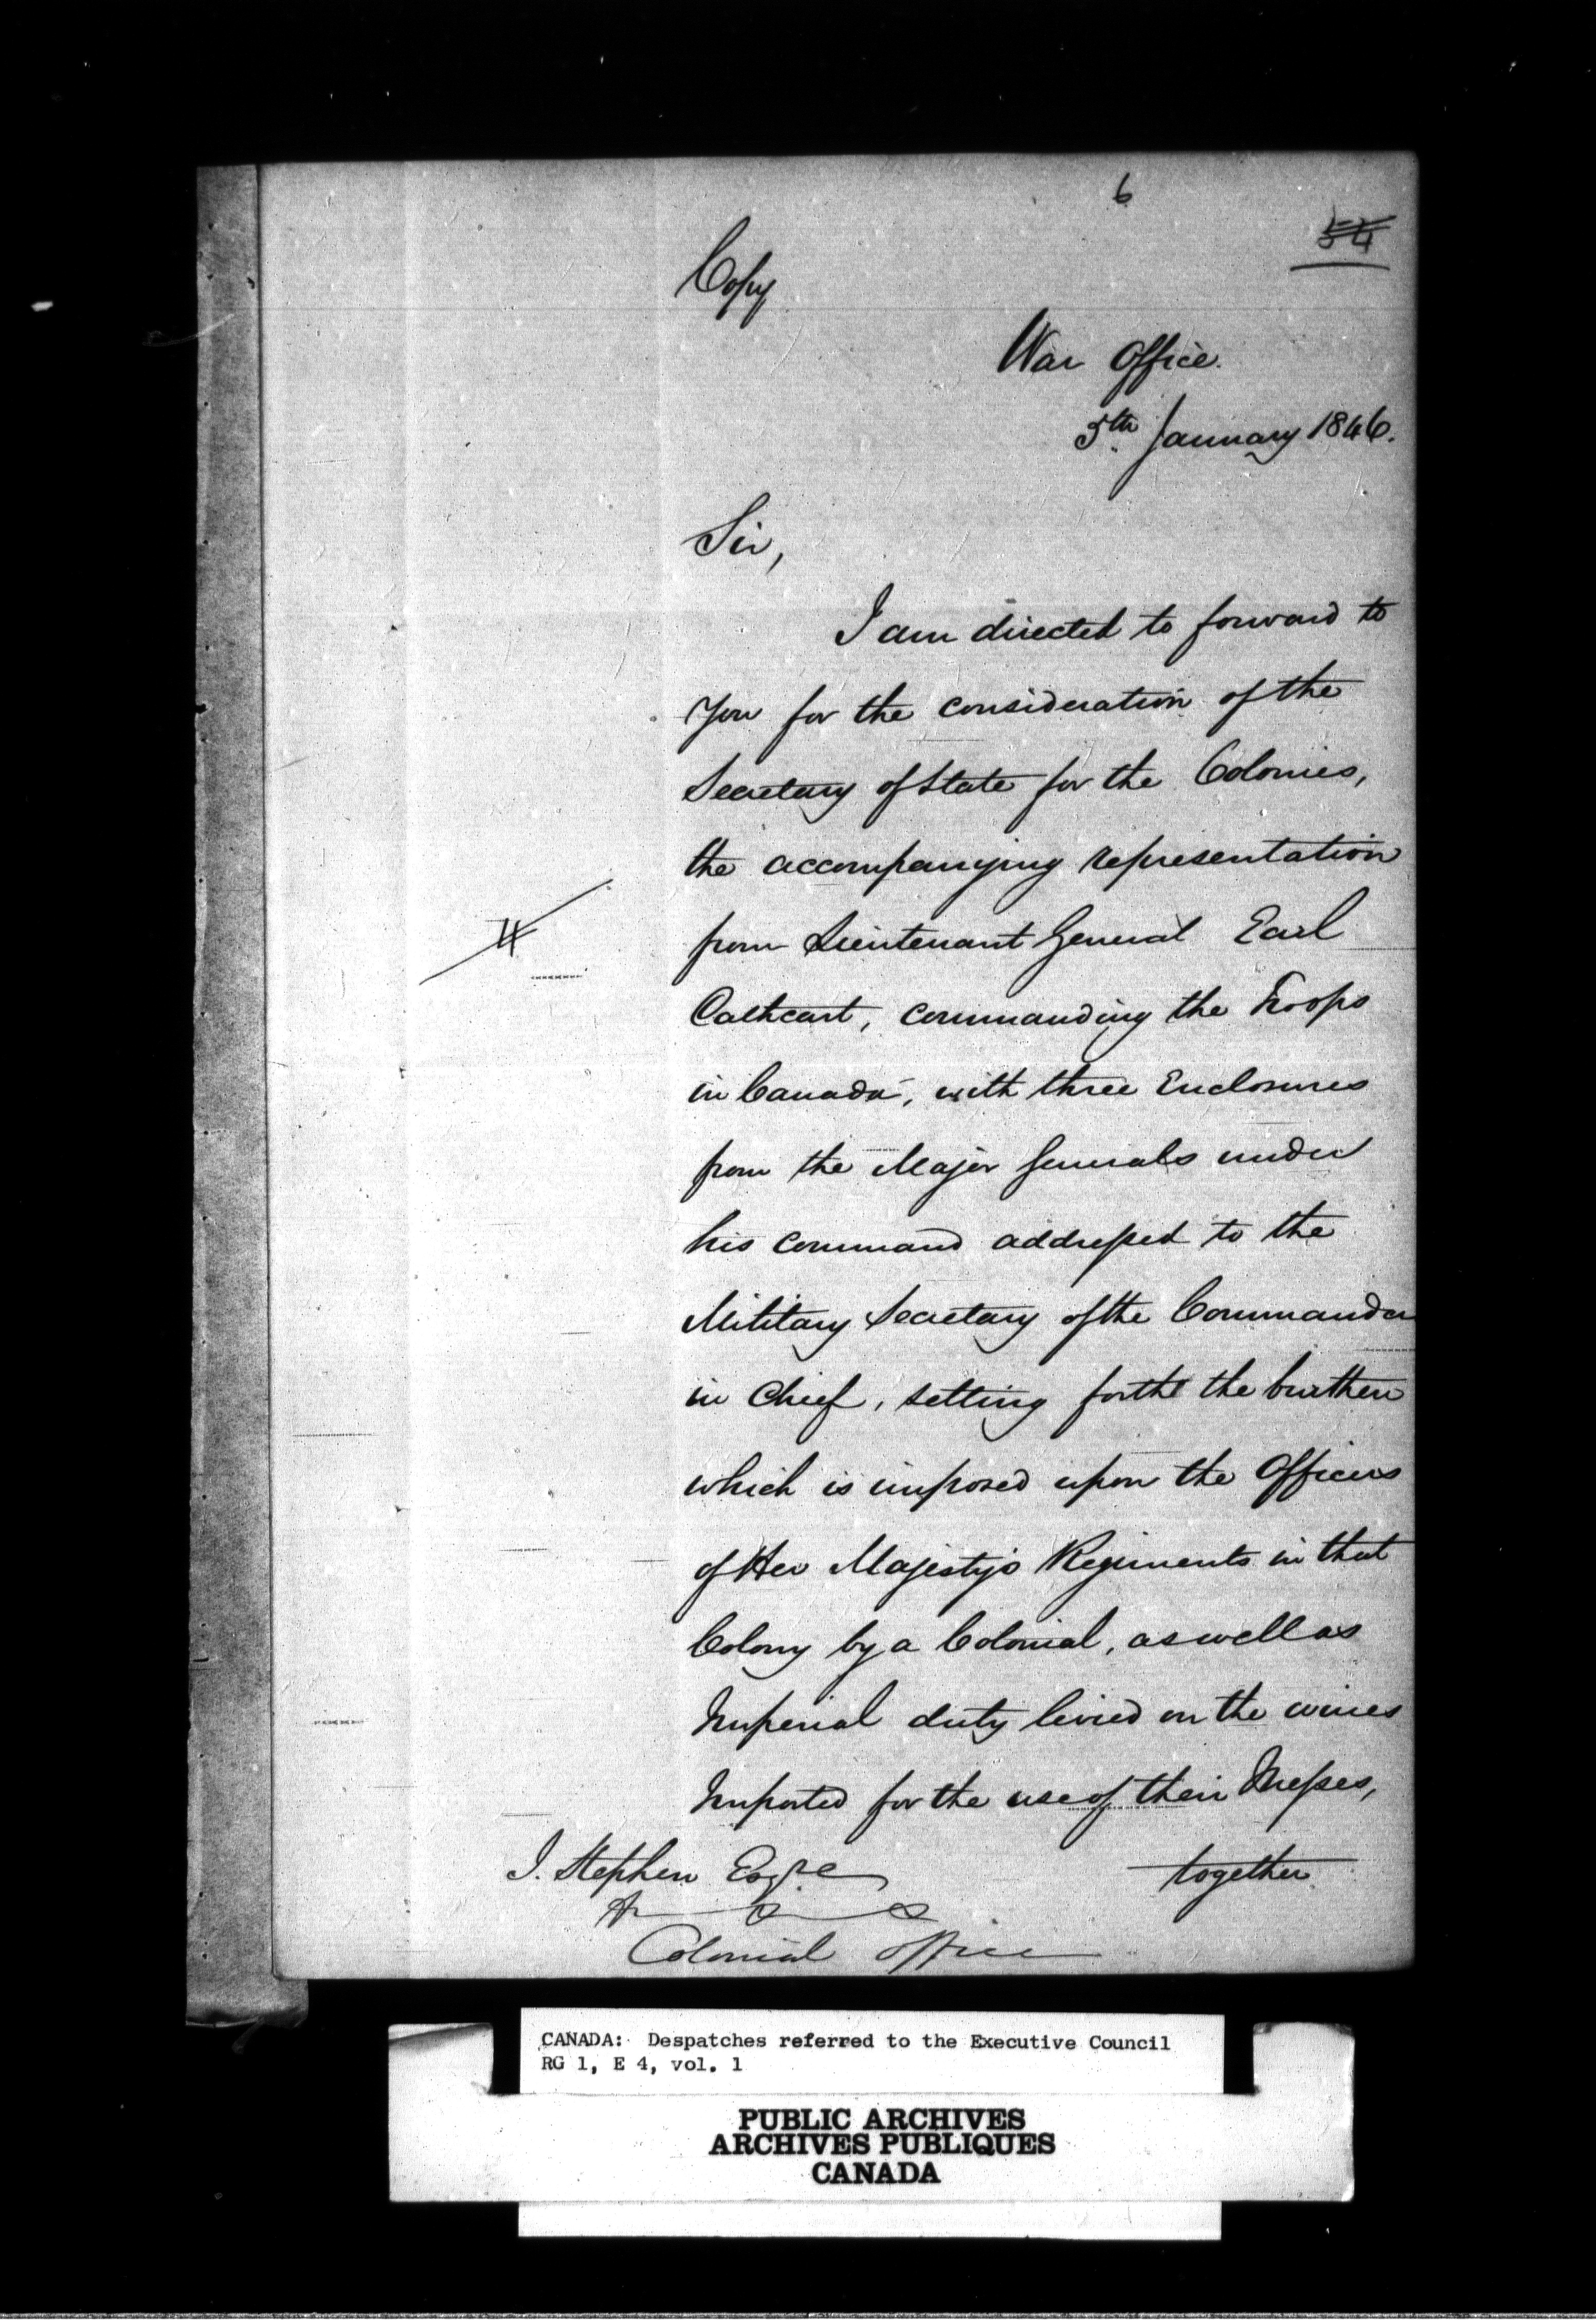 6
54
Copy
War Office.
5th January 1846.
Sir,
I am directed to forward to
you for the consideration of the
Secretary of State for the Colonies,
the accompanying representation
4
from Lieutenant General Earl
Cathcart, commanding the Troops
in Canada, with three Enclosures
from the Major Generals under
his command addressed to the
Military Secretary of the Commander
in Chief, setting forth the burthen
which is imposed upon the Officers
of Her Majesty's Regiments in that
Colony by a Colonial, as well as
Imperial duty levied on the wines
Imported for the use of their Messes,
together
J. Stephen Esqre
Colonial Office
CANADA: Despatches referred to the Executive Council
RG 1, E 4, vol. 1
PUBLIC ARCHIVES
ARCHIVES PUBLIQUES
CANADA